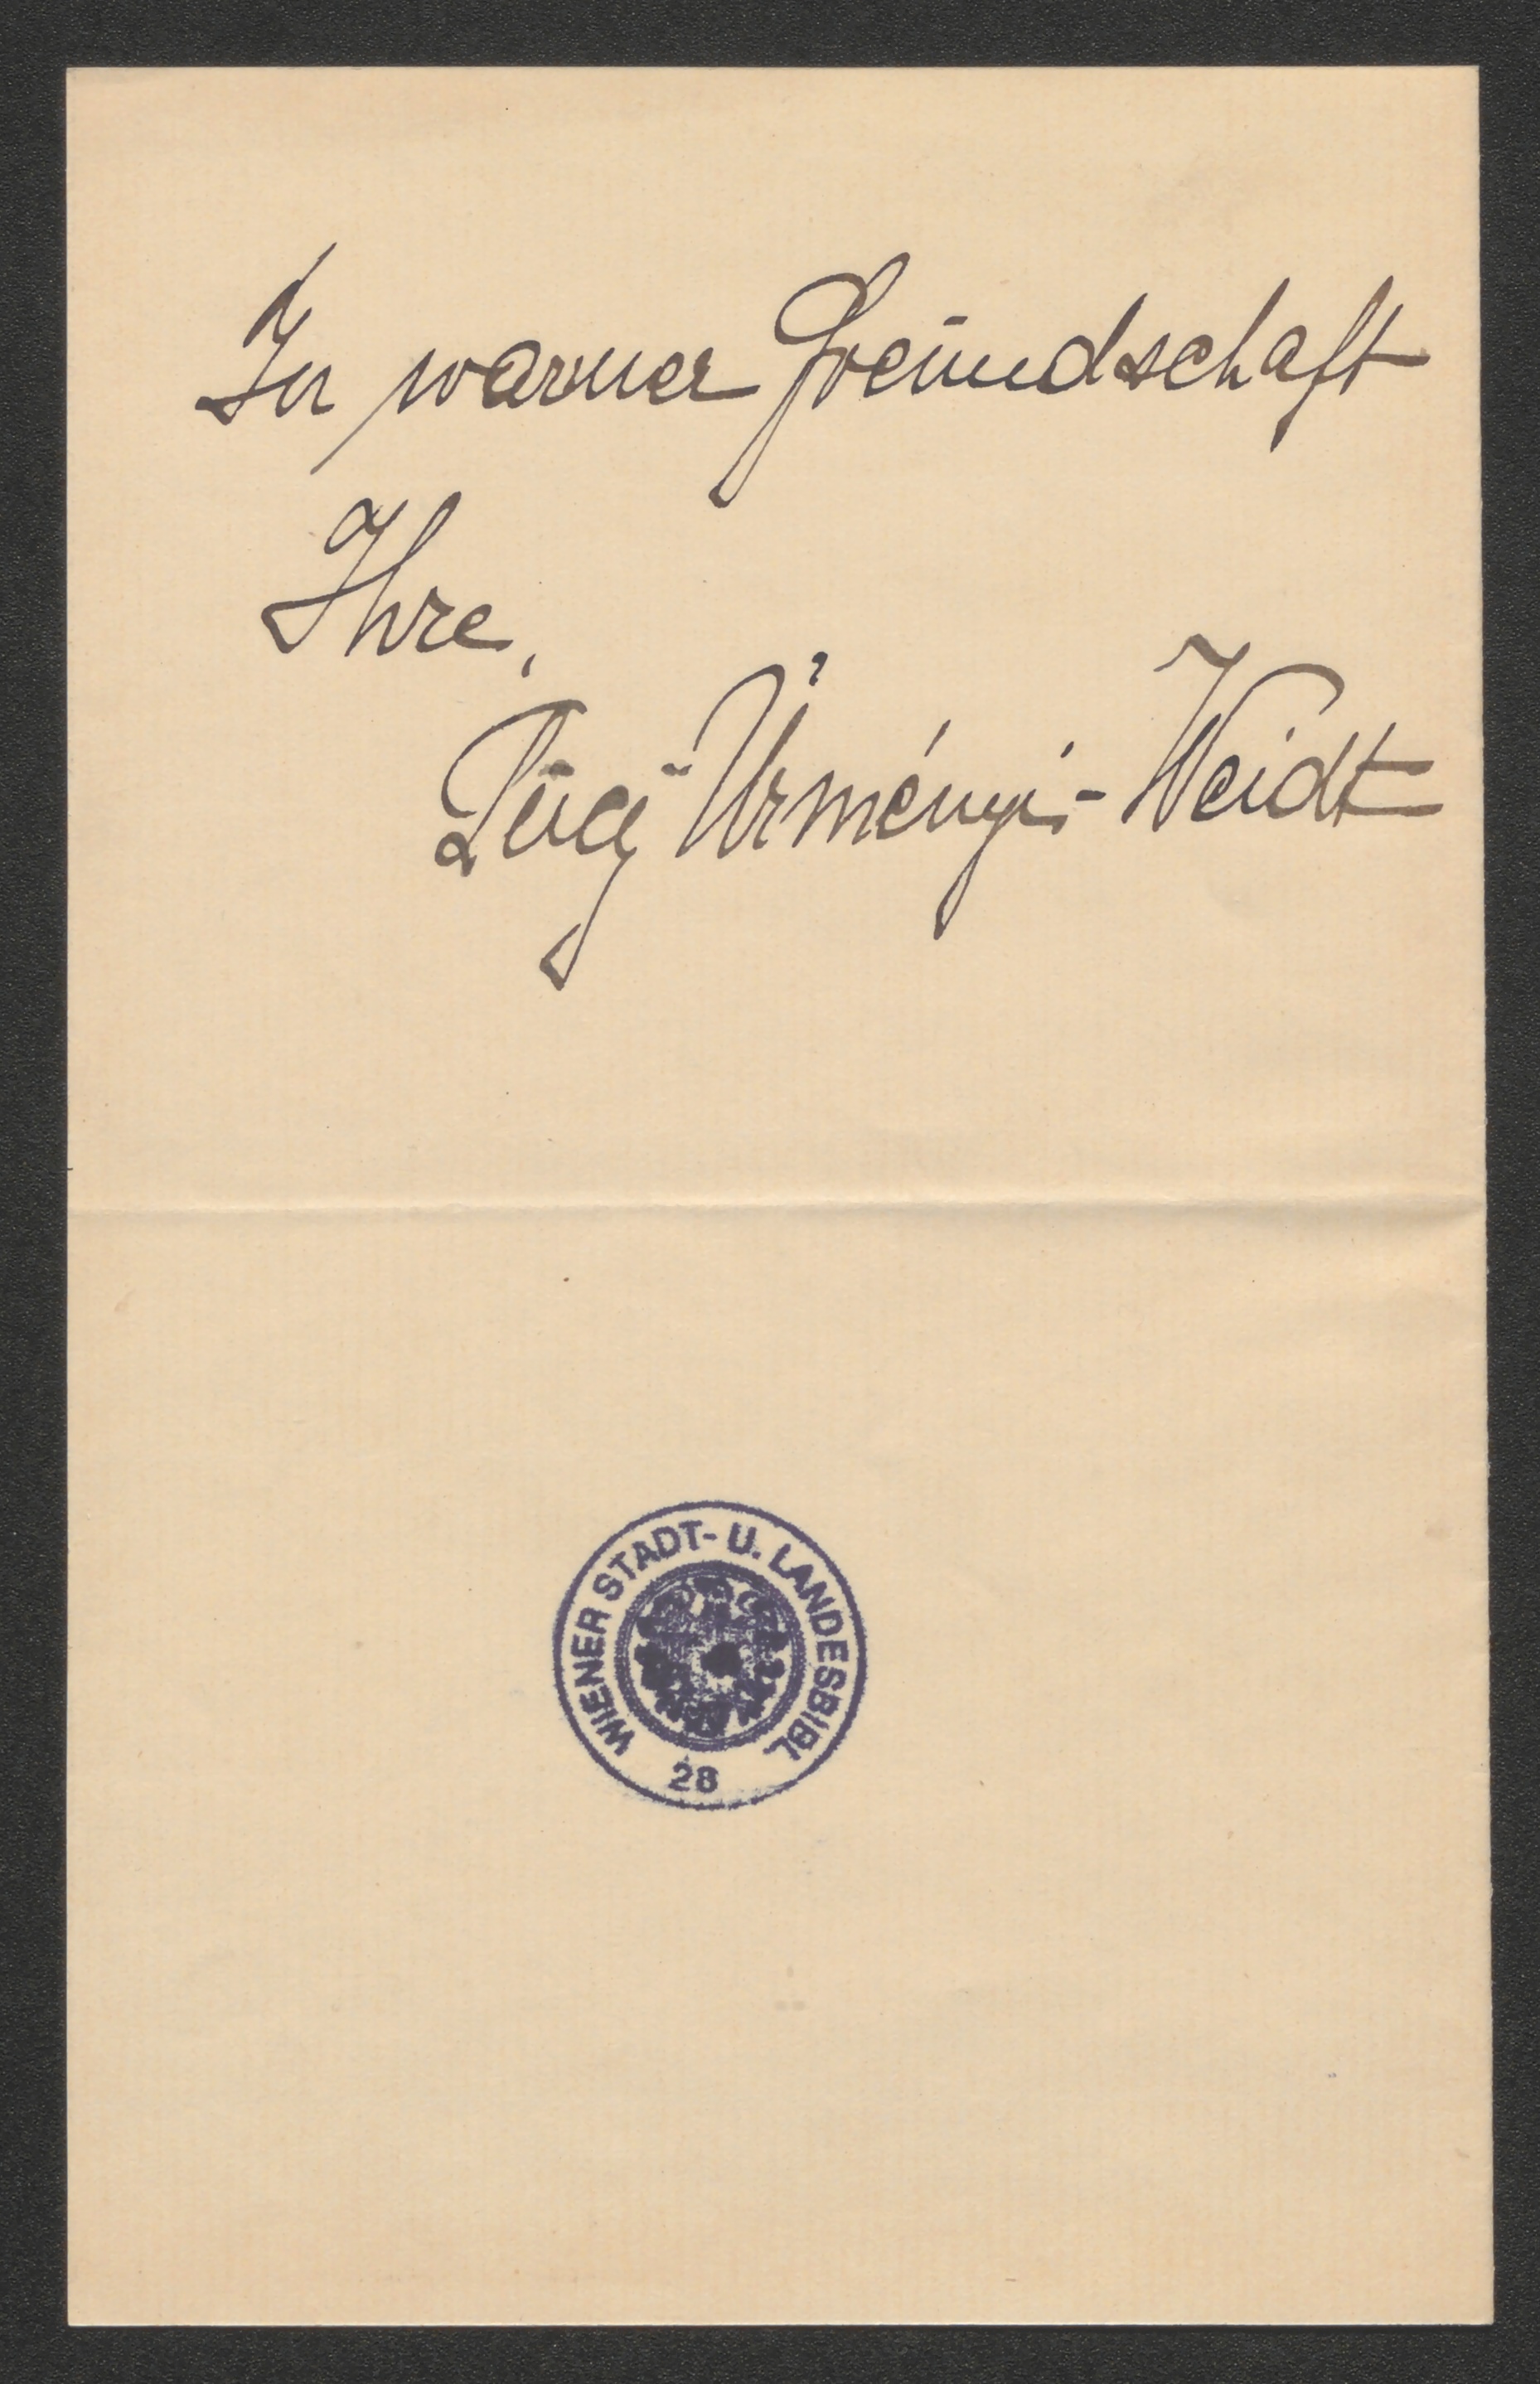 In warmer Freundschaft
Ihre,
Lucy Ürményi-Weidt
WIENER STADT- U. LANDESBIBL.
28